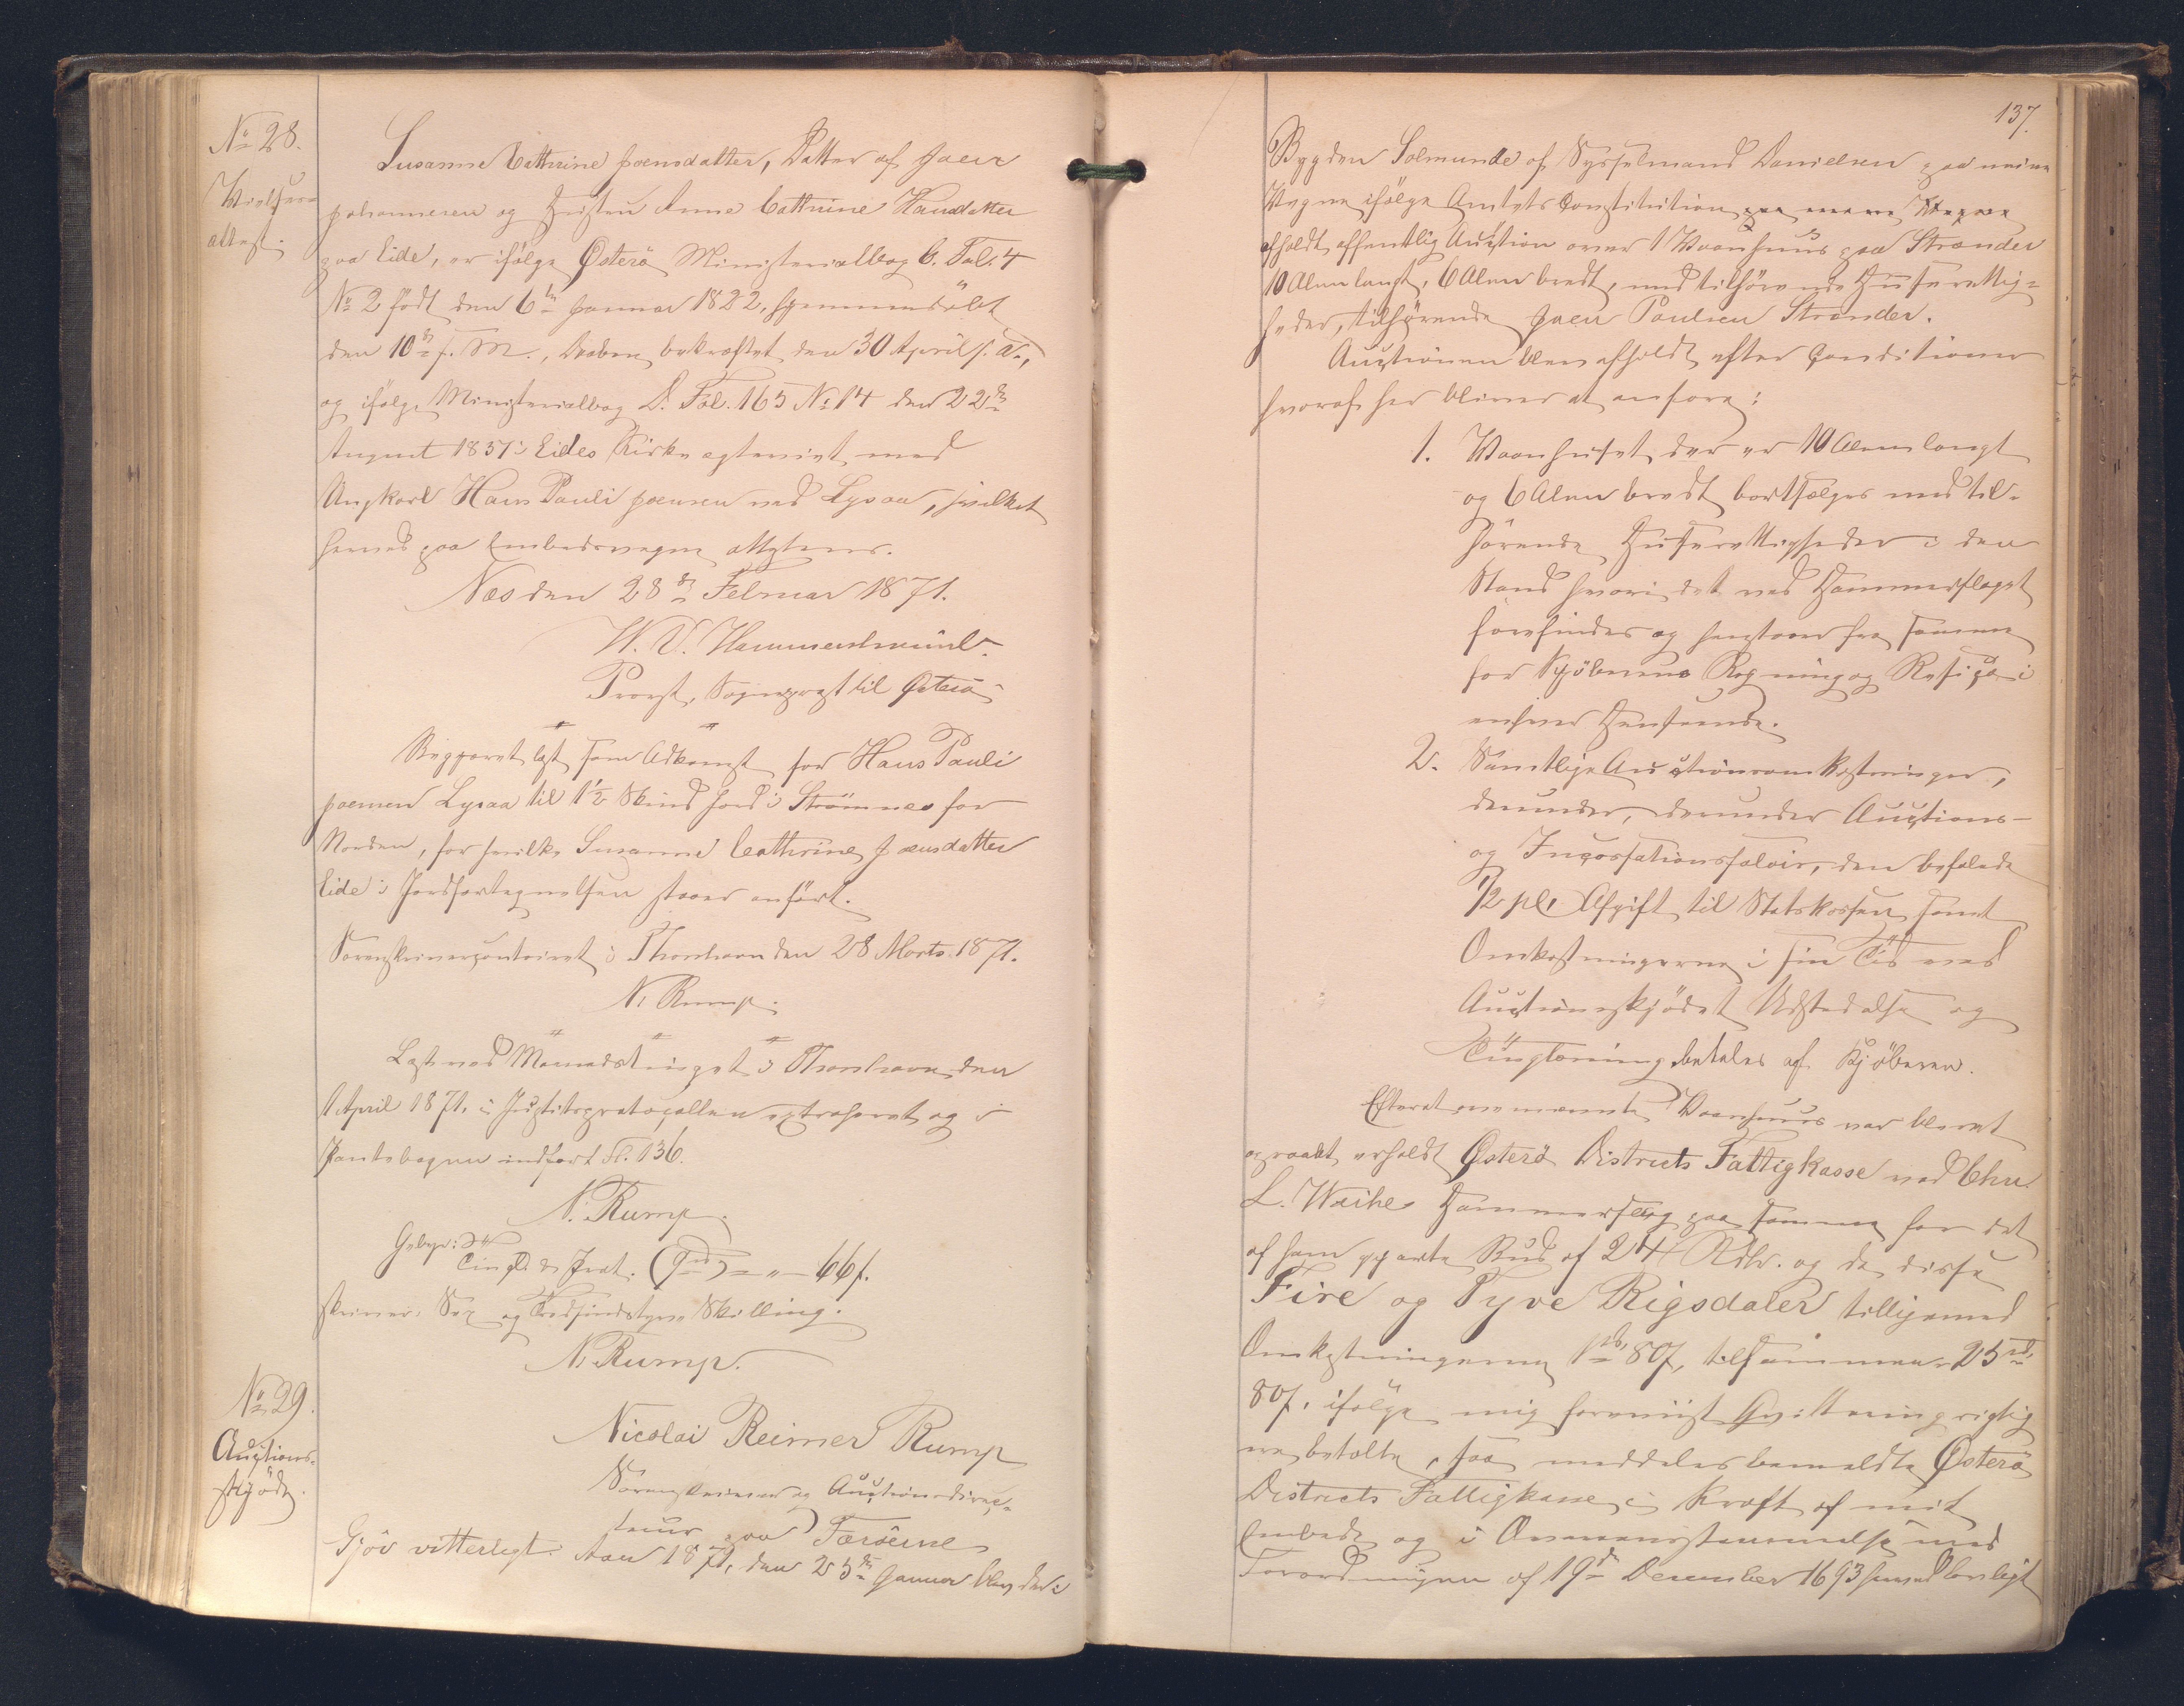 No 28.
Vielses-
attest.
Susanne Cathrine Joensdatter, Datter af Joen
Johannesen og Hustru Anne Cathrine Hansdatter
paa Eide, er ifølge Østerø Ministerialbog C. Fol. 4
No 2 født den 6te Januar 1822, hjemmedøbt
den 10de s. M., Daaben bekræftet den 30 April s. A.,
og ifølge Ministerialbog D. Fol. 165 No 14 den 22de
August 1857 i Eides Kirke ægteviet med
Ungkarl Hans Pauli Joensen ved Lysaa, hvilket
herved paa Embedsvegne attesteres.
Næs den 28de Februar 1871.
W. U. Hammershaimb.
Provst, Sognepræst til Østerø
Begjæret læst som Adkomst for Hans Pauli
Joensen Lysaa til 1½ Skind Jord i Strømnes for
Norden, for hvilke Susanne Cathrine Joensdatter
Eide i Jordfortegnelsen staaer anført.
Sorenskrivercontoiret i Thorshavn den 28 Marts 1871.
N. Rump.
Læst ved Maanedstinget i Thorshavn den
1 April 1871, i Justitsprotocollen extraheret og i
Pantebogen indført Fl. 136.
N. Rump.
Gebyr:
Tingl. & Prot. 66 s.
skriver, Sex og Tredsindstyve Skilling.
N. Rump.
No 29.
Auctions-
skjøde.
Nicolai Reimer Rump
Sorenskriver og Auctionsdirec-
teur paa Færøerne
Gjør vitterligt: Aar 1871, den 25de Januar blev der i
137.
Bygden Solmunde af Sysselmand Danielsen paa mine
Vegne ifølge Amtets Constitution paa mine Vegne
afholdt offentlig Auction over 1 Vaanhuus paa Strænder
10 Alen langt, 6 Alen bredt, med tilhørende Huserettig-
heder, tilhørende Joen Poulsen Strænder.
Auctionen blev afholdt efter Conditioner
hvoraf her bliver at anføre:
1. Vaanhuset der er 10 Alen langt
og 6 Alen bredt bortsælges med til-
hørende Huserettigheder i den
Stand hvori det ved Hammerslaget
forefindes og henstaaer fra samme
for Kjøberens Regning og Risico i
enhver Henseende.
2. Samtlige Auctionsomkostninger,
derunder, derunder Auctions-
og Incassationssalair, den befalede
½ pCt Afgift til Statskassen samt
Omkostningerne i sin Tid ved
Auctionsskjødets Udstedelse og
Tinglæsning betales af Kjøberen.
Efterat ovennævnte Vaanhuus var blevet
opraabt, erholdt Østerø Districts Fattigkasse ved Chr.
L. Weihe Hammerslag paa samme for det
af ham gjorte Bud af 24 Rdlr. og da disse
Fire og Tyve Rigsdaler tilligemed
Omkostningerne 1 rd 80 s, tilsammen 25 rd
80 s, ifølge mig foreviist Qvittering rigtig
ere betalte, saa meddeles bemeldte Østerø
Districts Fattigkasse i Kraft af mit
Embede og i Overensstemmelse med
Forordningen af 19de December 1693 herved lovligt